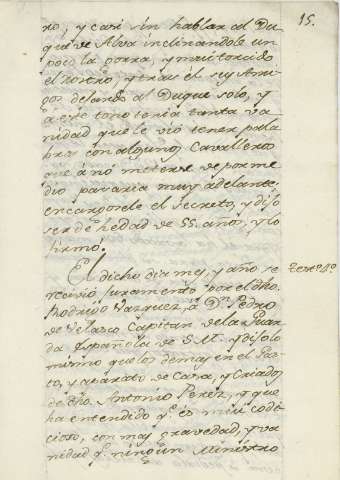 15.
ro, y casi sin hablar al Du
que de Alva inclinandole un
poco la gorra, y mui torcido
el rostro, y tras el sey Ami
gos dejando al Duque solo, y
a este tono tenia tanta va
nidad que le vió tener pala
bras con algunos Cavalleros
que á nó meterse de por me
dio pararia muy adelante,
encargosele el secreto, y dijo
ser de hedad de 55. años, y lo
firmó.
El dicho dia mes, y año re
cevió juramento por el dho.
Rodrigo Vazquez, á Dn. Pedro
de Velasco Capitan de la Guar
da Española de S.M. y dijo lo
mismo que los demas en el Gas
to, y aparato de Casa, y Criados
de dho. Antonio Perez, y que
ha entendido qe. es mui codi
cioso, con mas gravedad, y va
nidad qe. ningun Ministro